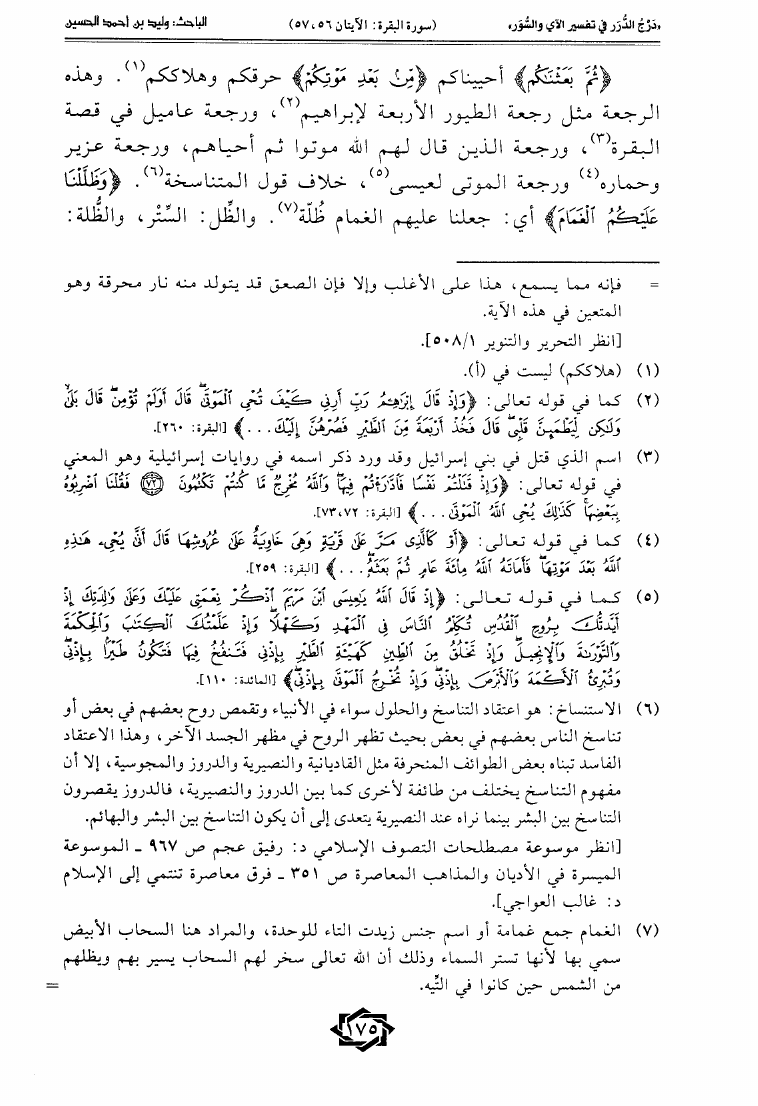 «دَرْجُ الدُّرَر في تفسير الآي والسُّوَر» (سورة البقرة: الآيتان ٥٦، ٥٧) الباحث: وليد بن أحمد الحسين
﴿ثُمَّ بَعَثْنَٰكُم﴾ أحييناكم ﴿مِّنۢ بَعْدِ مَوْتِكُمْ﴾ حرقكم وهلاككم(١). وهذه
الرجعة مثل رجعة الطيور الأربعة لإبراهيم(٢)، ورجعة عاميل في قصة
البقرة(٣)، ورجعة الذين قال لهم الله موتوا ثم أحياهم، ورجعة عزير
وحماره(٤) ورجعة الموتى لعيسى(٥)، خلاف قول المتناسخة(٦). ﴿وَظَلَّلْنَا
عَلَيْكُمُ ٱلْغَمَامَ﴾ أي: جعلنا عليهم الغمام ظُلّة(٧). والظِّل: السِّتْر، والظُّلة:
= فإنه مما يسمع، هذا على الأغلب وإلا فإن الصعق قد يتولد منه نار محرقة وهو
المتعين في هذه الآية.
[انظر التحرير والتنوير ٥٠٨/١].
(١) (هلاككم) ليست في (أ).
(٢) كما في قوله تعالى: ﴿وَإِذْ قَالَ إِبْرَٰهِـۧمُ رَبِّ أَرِنِى كَيْفَ تُحْىِ ٱلْمَوْتَىٰ قَالَ أَوَلَمْ تُؤْمِن قَالَ بَلَىٰ
وَلَٰكِن لِّيَطْمَئِنَّ قَلْبِى قَالَ فَخُذْ أَرْبَعَةً مِّنَ ٱلطَّيْرِ فَصُرْهُنَّ إِلَيْكَ...﴾ [البقرة: ٢٦٠].
(٣) اسم الذي قتل في بني إسرائيل وقد ورد ذكر اسمه في روايات إسرائيلية وهو المعني
في قوله تعالى: ﴿وَإِذْ قَتَلْتُمْ نَفْسًا فَٱدَّٰرَْٰٔتُمْ فِيهَا وَٱللَّهُ مُخْرِجٌ مَّا كُنتُمْ تَكْتُمُونَ ٧٢ فَقُلْنَا ٱضْرِبُوهُ
بِبَعْضِهَا كَذَٰلِكَ يُحْىِ ٱللَّهُ ٱلْمَوْتَىٰ...﴾ [البقرة: ٧٢، ٧٣].
(٤) كما في قوله تعالى: ﴿أَوْ كَٱلَّذِى مَرَّ عَلَىٰ قَرْيَةٍ وَهِىَ خَاوِيَةٌ عَلَىٰ عُرُوشِهَا قَالَ أَنَّىٰ يُحْىِۦ هَٰذِهِ
ٱللَّهُ بَعْدَ مَوْتِهَا فَأَمَاتَهُ ٱللَّهُ مِا۟ئَةَ عَامٍ ثُمَّ بَعَثَهُۥ...﴾ [البقرة: ٢٥٩].
(٥) كما في قوله تعالى: ﴿إِذْ قَالَ ٱللَّهُ يَٰعِيسَى ٱبْنَ مَرْيَمَ ٱذْكُرْ نِعْمَتِى عَلَيْكَ وَعَلَىٰ وَٰلِدَتِكَ إِذْ
أَيَّدتُّكَ بِرُوحِ ٱلْقُدُسِ تُكَلِّمُ ٱلنَّاسَ فِى ٱلْمَهْدِ وَكَهْلًا وَإِذْ عَلَّمْتُكَ ٱلْكِتَٰبَ وَٱلْحِكْمَةَ
وَٱلتَّوْرَىٰةَ وَٱلْإِنجِيلَ وَإِذْ تَخْلُقُ مِنَ ٱلطِّينِ كَهَيْـَٔةِ ٱلطَّيْرِ بِإِذْنِى فَتَنفُخُ فِيهَا فَتَكُونُ طَيْرًۢا بِإِذْنِى
وَتُبْرِئُ ٱلْأَكْمَهَ وَٱلْأَبْرَصَ بِإِذْنِى وَإِذْ تُخْرِجُ ٱلْمَوْتَىٰ بِإِذْنِى﴾ [المائدة: ١١٠].
(٦) الاستنساخ: هو اعتقاد التناسخ والحلول سواء في الأنبياء وتقمص روح بعضهم في بعض أو
تناسخ الناس بعضهم في بعض بحيث تظهر الروح في مظهر الجسد الآخر، وهذا الاعتقاد
الفاسد تبناه بعض الطوائف المنحرفة مثل القاديانية والنصيرية والدروز والمجوسية، إلا أن
مفهوم التناسخ يختلف من طائفة لأخرى كما بين الدروز والنصيرية، فالدروز يقصرون
التناسخ بين البشر بينما نراه عند النصيرية يتعدى إلى أن يكون التناسخ بين البشر والبهائم.
[انظر موسوعة مصطلحات التصوف الإسلامي د: رفيق عجم ص ٩٦٧ ـ الموسوعة
الميسرة في الأديان والمذاهب المعاصرة ص ٣٥١ ـ فرق معاصرة تنتمي إلى الإسلام
د: غالب العواجي].
(٧) الغمام جمع غمامة أو اسم جنس زيدت التاء للوحدة، والمراد هنا السحاب الأبيض
سمي بها لأنها تستر السماء وذلك أن الله تعالى سخر لهم السحاب يسير بهم ويظلهم
من الشمس حين كانوا في التِّيه. =
١٧٥